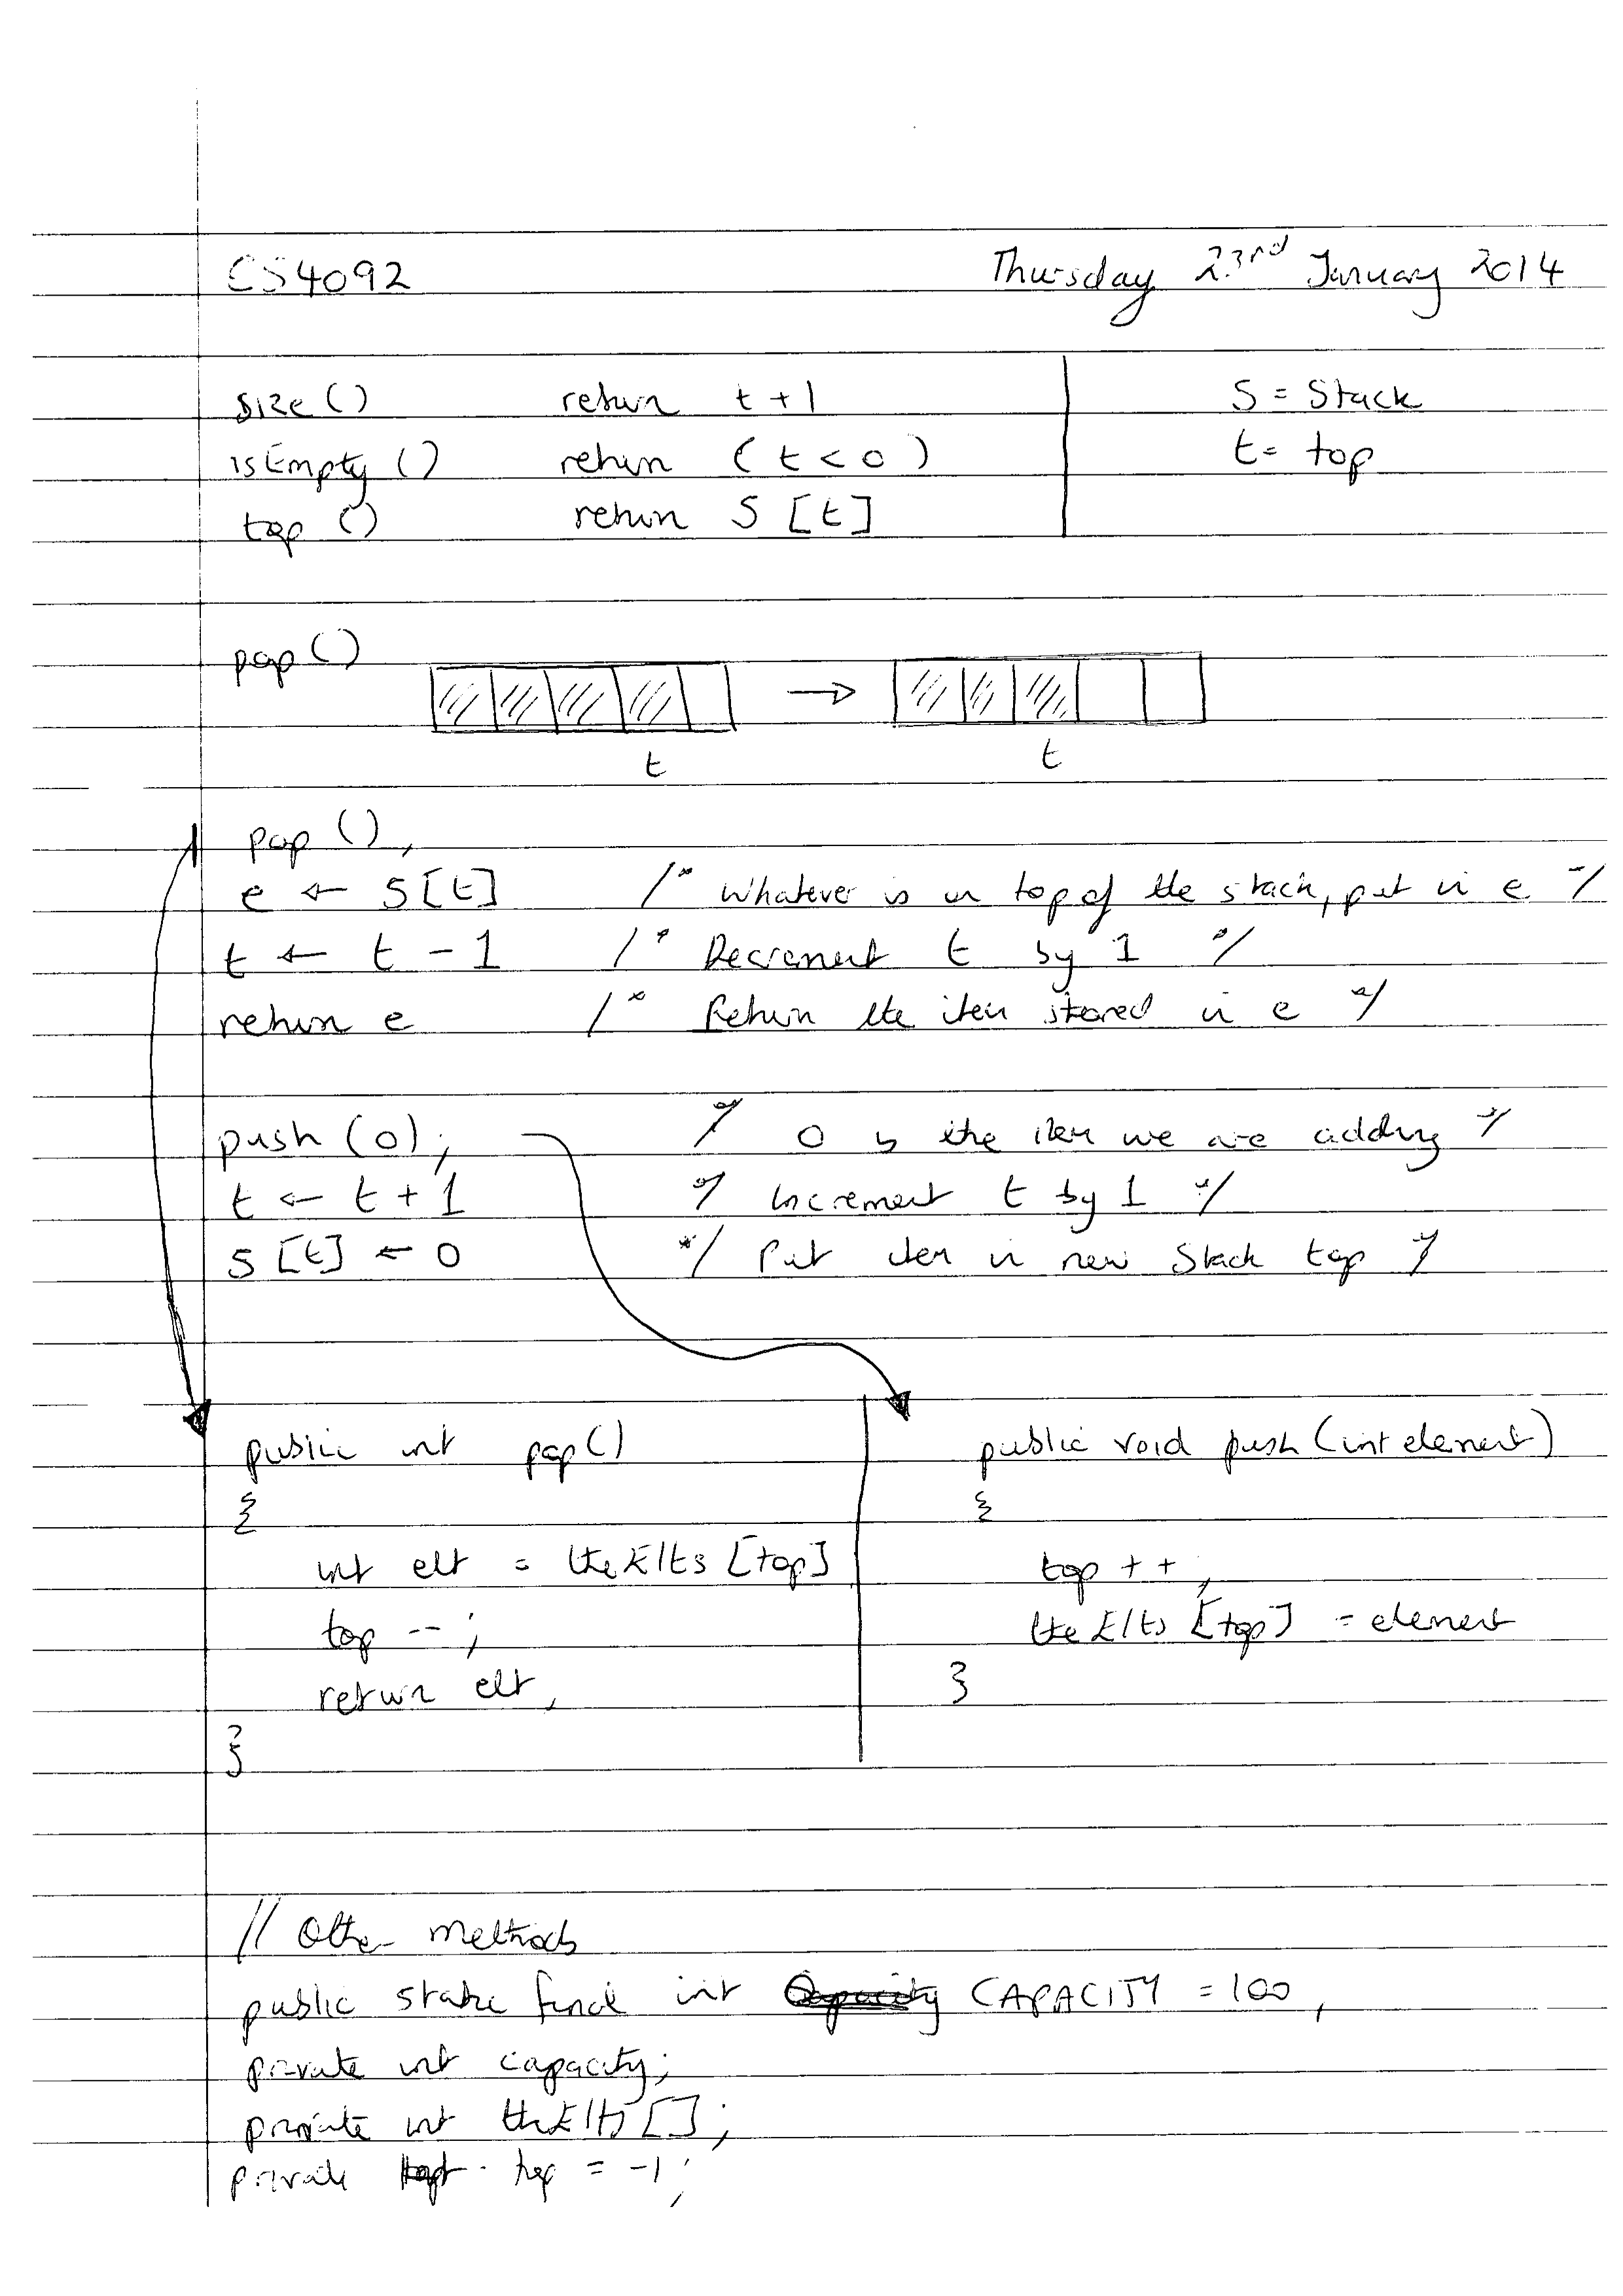 CS4092 Thursday 23rd January 2014
size () return t + 1 S = Stack
isEmpty () return ( t < 0 ) t = top
top () return S [t]
pop ()
t t
pop ();
e ← S[t] /* Whatever is on top of the stack, put in e */
t ← t - 1 /* Decrement t by 1 */
return e /* Return the item stored in e */
push (o); */ o is the item we are adding */
t ← t + 1 */ Increment t by 1 */
S [t] ← o */ Put item in new stack top */
public int pop () public void push (int element)
{ {
int elt = theElts [top] top + + ;
top -- ; theElts [top] = element
return elt; }
}
// Other methods
public static final int CAPACITY = 100 ;
private int capacity;
private int theElts [];
private top = -1 ;